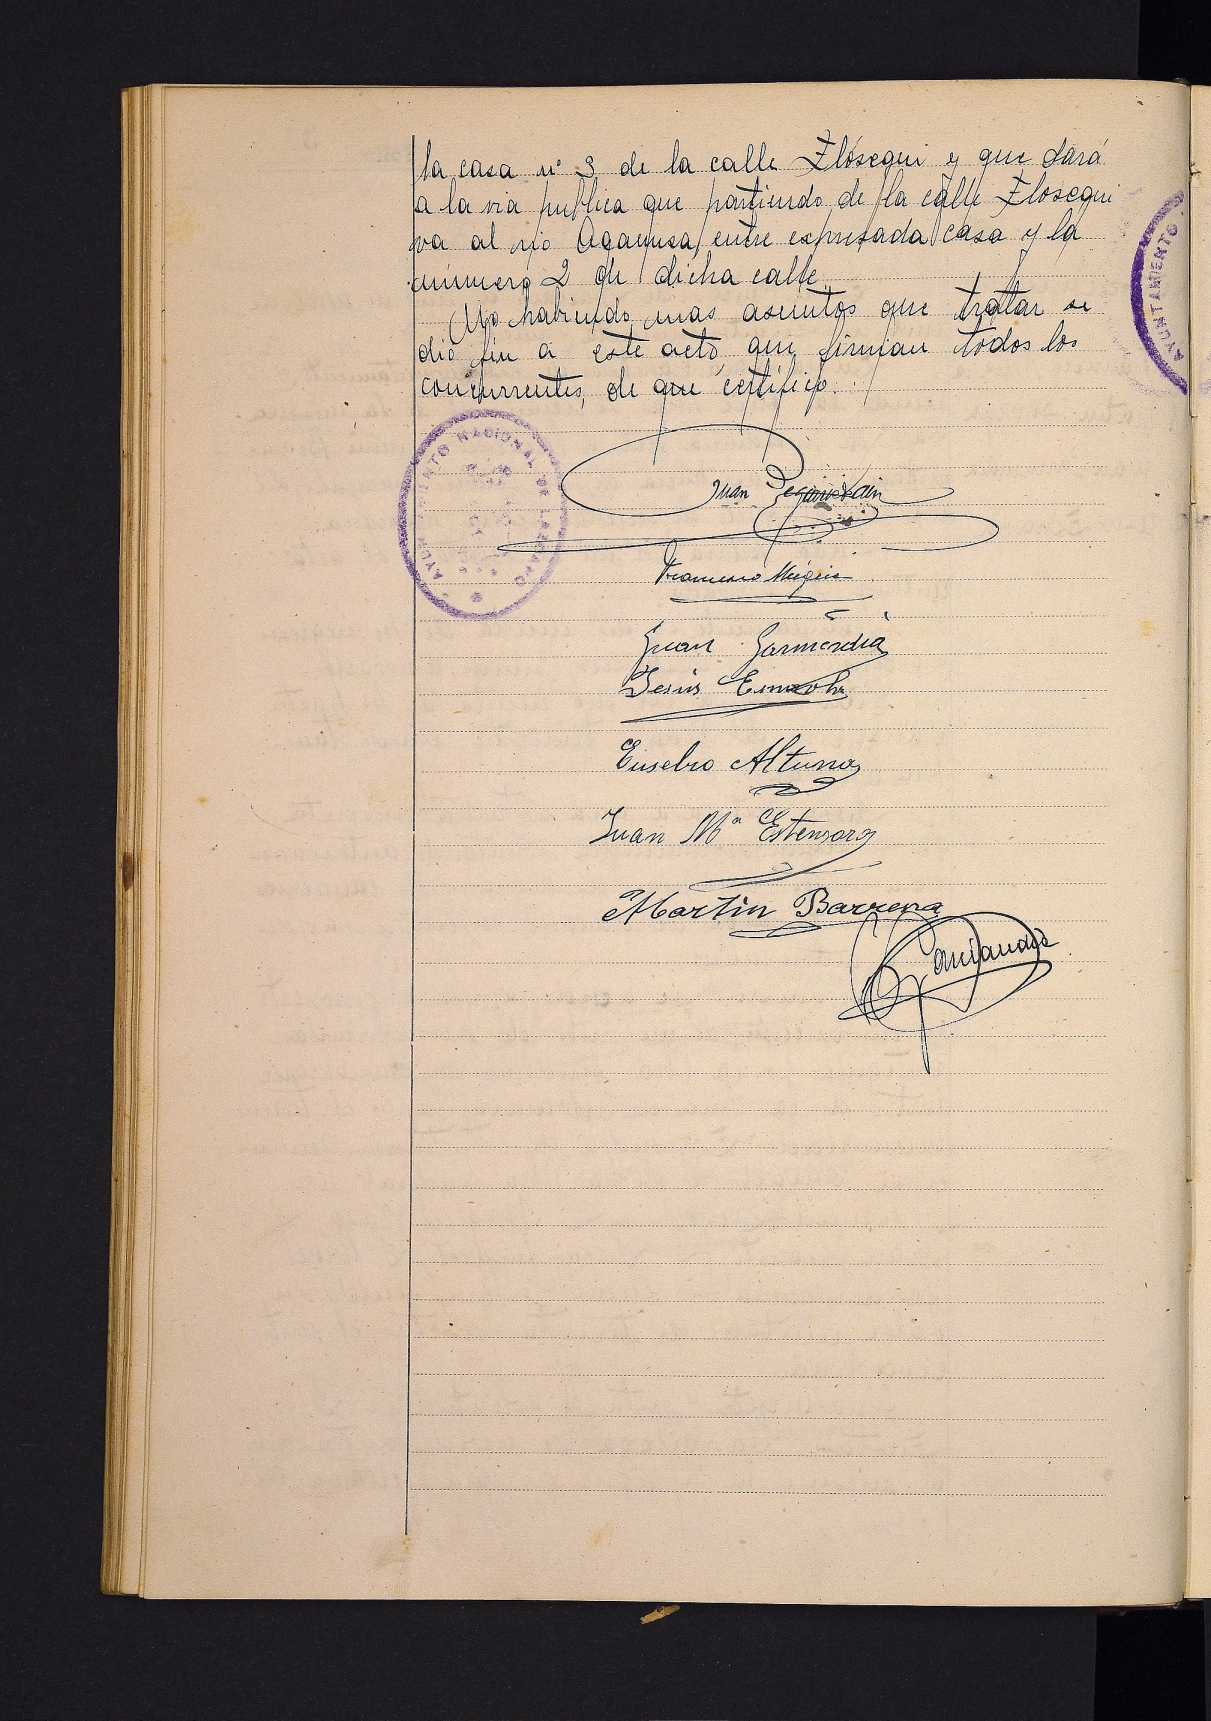 la casa nº 3 de la calle Elósegui y que dará
a la via publica que partiendo de la calle Elosegui
va al rio Agaunsa, entre expresada casa y la
número 2 de dicha calle.
No habiendo mas asuntos que tratar se
dió fin a este acto que firman todos los
concurrentes, de que certifico.
AYUNTAMIENTO NACIONAL DE LAZCANO
Juan
Francisco Múgica
Juan Garmendia
Jesús
Eusebio Altuna
Juan Mª Estensoro
Martin Barrena
AYUNTAMIENTO